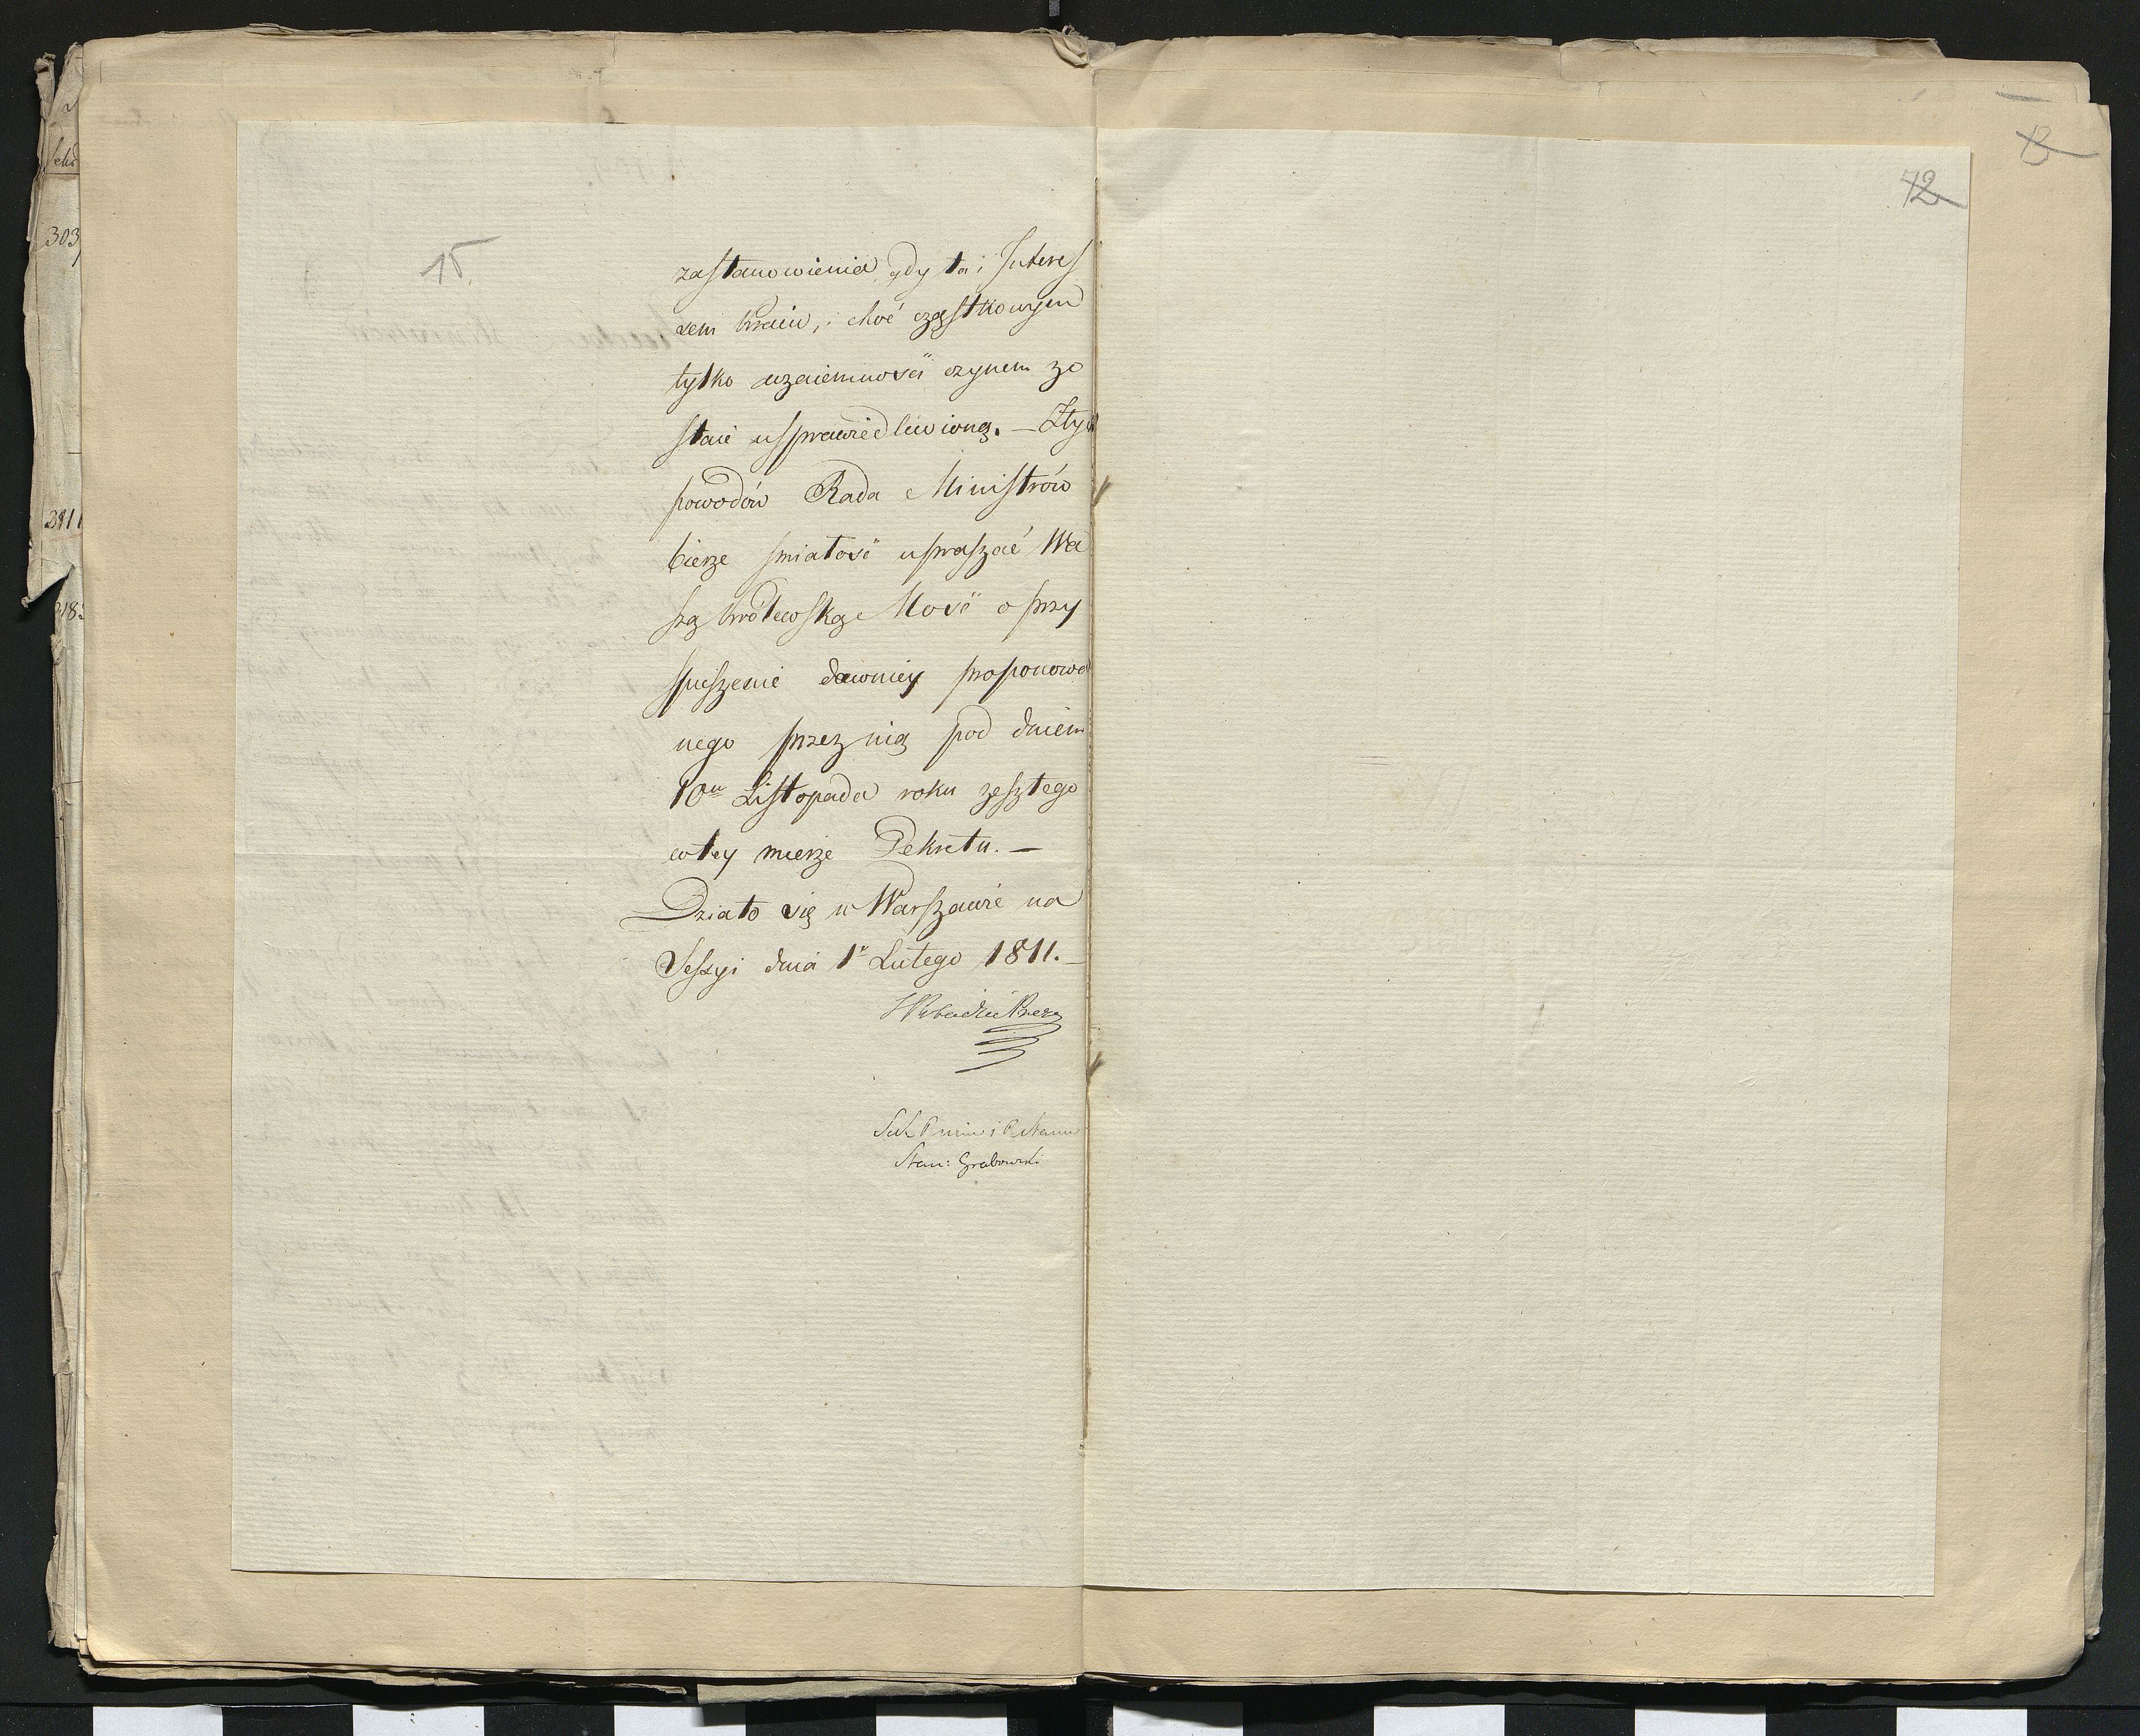 15.
zastanowienia, gdy ta i Interes
sem Kraiu, i choć cząstkowym
tylko wzaiemności czynem zo
staie usprawiedliwioną. – Z tych
powodów Rada Ministrów
bierze śmiałość upraszać Wa
szą Królewską Mość o przy
spieszenie dawniey proponowa
nego przez nią pod dniem
10m Listopada roku zeszłego
w tey mierze Dekretu. –
Działo się w Warszawie na
Sessyi dnia 1o Lutego 1811. –
Stan: Grabowski
12
13
303